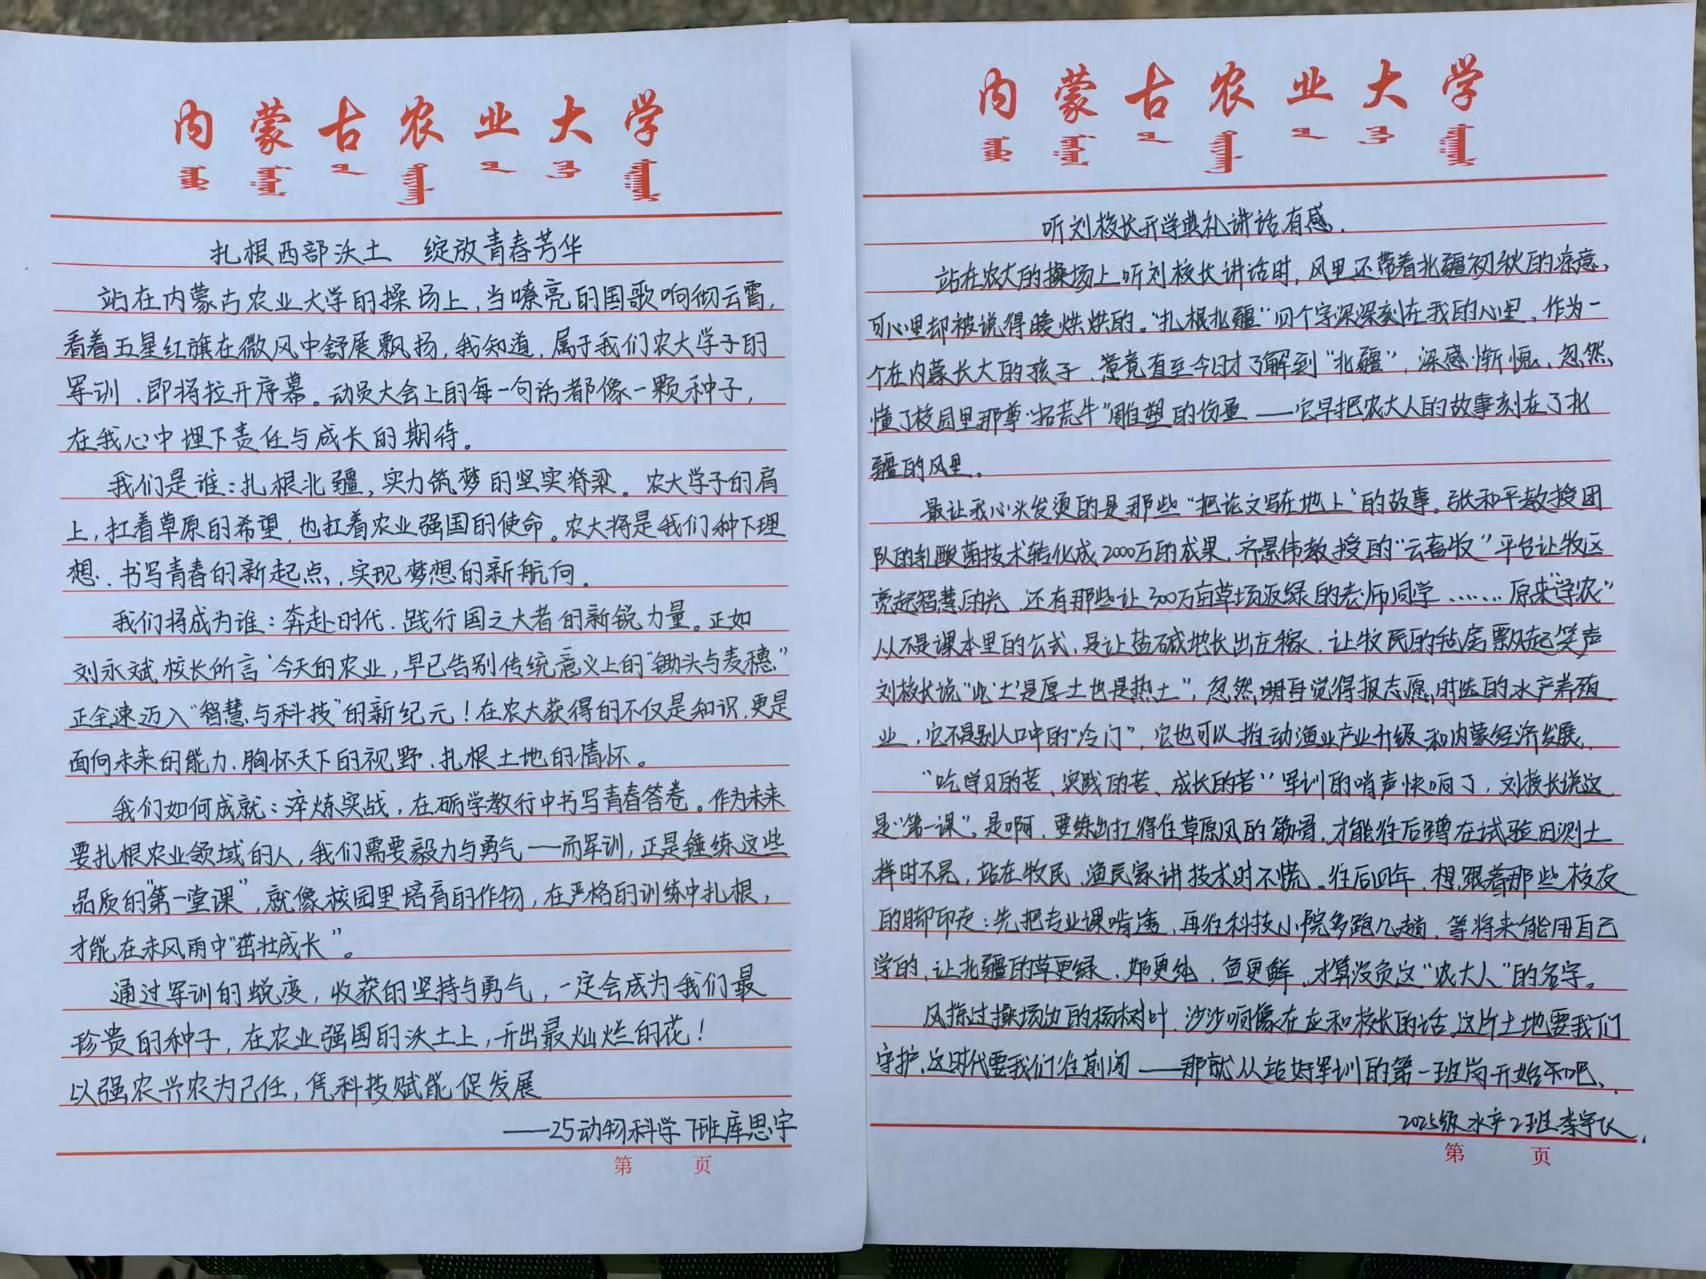 内蒙古农业大学
扎根西部沃土 绽放青春芳华
站在内蒙古农业大学的操场上,当嘹亮的国歌响彻云霄,
看着五星红旗在微风中舒展飘扬,我知道,属于我们农大学子的
军训、即将拉开序幕。动员大会上的每一句话都像一颗种子,
在我心中埋下责任与成长的期待。
我们是谁:扎根北疆,实力筑梦的坚实脊梁。农大学子的肩
上,扛着草原的希望,也扛着农业强国的使命。农大将是我们种下理
想、书写青春的新起点,实现梦想的新航向。
我们将成为谁:奔赴时代、践行国之大者的新锐力量。正如
刘永斌校长所言“今天的农业,早已告别传统意义上的“锄头与麦穗”
正全速迈入“智慧与科技”的新纪元!在农大获得的不仅是知识,更是
面向未来的能力、胸怀天下的视野、扎根土地的情怀。
我们如何成就:淬炼实战,在砺学敦行中书写青春答卷。作为未来
要扎根农业领域的人,我们需要毅力与勇气——而军训,正是锤练这些
品质的“第一堂课”,就像校园里培育的作物,在严格的训练中扎根,
才能在未风雨中“茁壮成长”。
通过军训的蜕变,收获的坚持与勇气,一定会成为我们最
珍贵的种子,在农业强国的沃土上,开出最灿烂的花!
以强农兴农为己任,凭科技赋能促发展
——25动物科学7班库思宇
第 页
内蒙古农业大学
听刘校长开学典礼讲话有感.
站在农大的操场上听刘校长讲话时,风里还带着北疆初秋的凉意,
可心里却被说得暖烘烘的。“扎根北疆”四个字深深刻在我的心里,作为一
个在内蒙长大的孩子,竟直至今日才了解到“北疆”,深感惭愧、忽然
懂了校园里那尊“拓荒牛”雕塑的份量——它早把农大人的故事刻在了北
疆的风里。
最让我心头发烫的是那些“把论文写在地上”的故事。张和平教授团
队的乳酸菌技术转化成2000万的成果,齐景伟教授的“云畜牧”平台让牧区
亮起智慧的光,还有那些让300万亩草场返绿的老师同学……原来“学农”
从不是课本里的公式,是让盐碱地长出庄稼、让牧民的毡房飘起笑声
刘校长说“此‘土’是厚土也是热土”,忽然明白觉得报志愿时选的水产养殖
业,它不是别人口中的“冷门”,它也可以推动渔业产业升级和内蒙经济发展.
“吃学习的苦、实践的苦、成长的苦”军训的哨声快响了,刘校长说这
是“第一课”。是啊,要练出扛得住草原风的筋骨,才能往后蹲在试验田测土
样时不晃,站在牧民、渔民家讲技术时不慌。往后四年,想跟着那些校友
的脚印走:先把专业课啃透,再往科技小院多跑几趟,等将来能用自己
学的,让北疆的草更绿、奶更纯、鱼更鲜,才算没负这“农大人”的名字。
风掠过操场边的杨树叶,沙沙响像在应和校长的话,这片土地要我们
守护,这时代要我们往前闯——那就从站好军训的第一班岗开始干吧、
2025级水产2班李宇
第 页